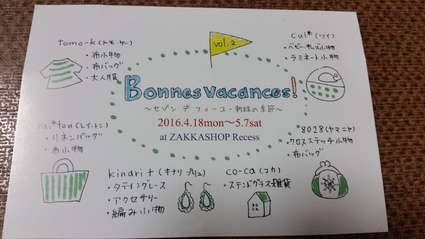 vol.2
Bonnes Vacances!
〜セゾン デ フィーユ・新緑の季節〜
2016.4.18mon〜5.7sat
at ZAKKASHOP Recess
tomo-k(トモ・ケー)
・布小物
・布バッグ
・大人服
cui*(ツイ)
・ベビー・キッズ小物
・ラミネート小物
(レイ・トン)
・リネンバッグ
・布小物
*8028(ヤマニヤ)
・クロスステッチ小物
・布バッグ
kinari+(キナリ プリュ)
・タティングレース
・アクセサリー
・編み小物
co-ca(コカ)
・ステンドグラス雑貨